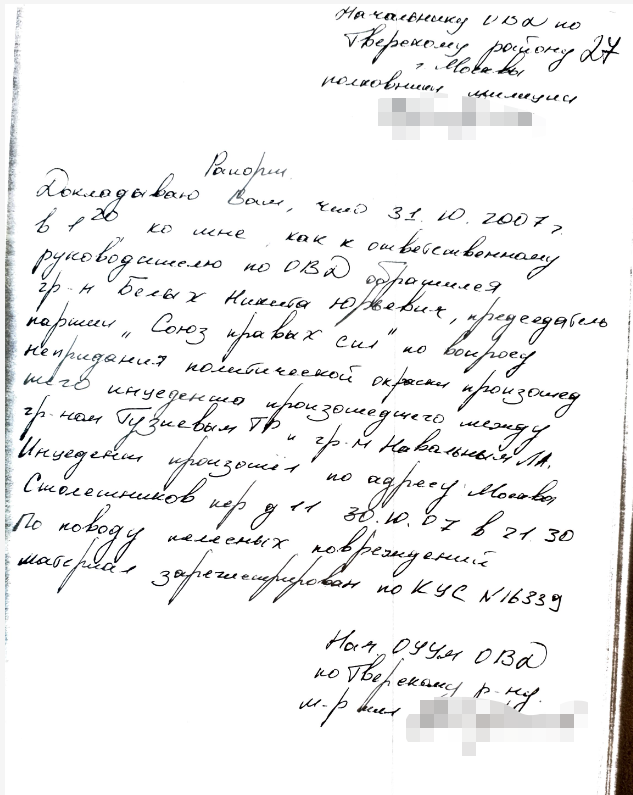 Начальнику ОВД по
Тверскому району 27
г Москвы
полковнику милиции
Рапорт.
Докладываю Вам, что 31.10.2007г
в 1 20 ко мне, как к ответственному
руководителю по ОВД обратился
гр-н Белых Никита Юрьевич, председатель
партии „Союз правых сил" по вопросу
непридания политической окраски произошед
шего инцедента произошедшего между
гр-ном Гузиевым ТР и гр-м Навальным ЛА.
Инцедент произошёл по адресу Москва
Столешников пер д 11 30.10.07 в 21 30
По поводу телесных повреждений
материал зарегистрирован по КУС N16339
Нач ОУУМ ОВД
по Тверскому р-ну.
м-р мил